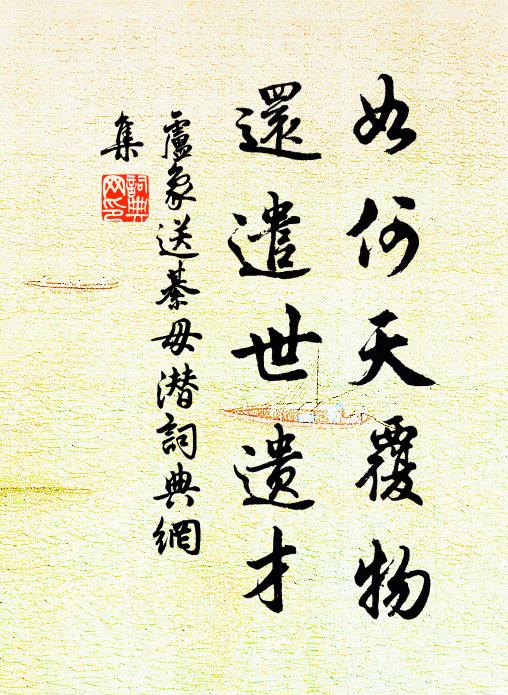 如何天覆物
還遣世遺才
盧象送綦毋潛詞典網
集
詞典
网印